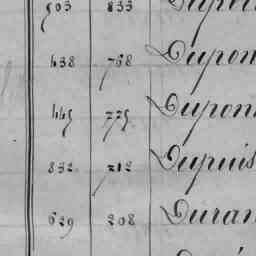 503 833 Dupon
438 768 Dupon
445 775 Dupon
832 212 Dupuis
629 208 Duran